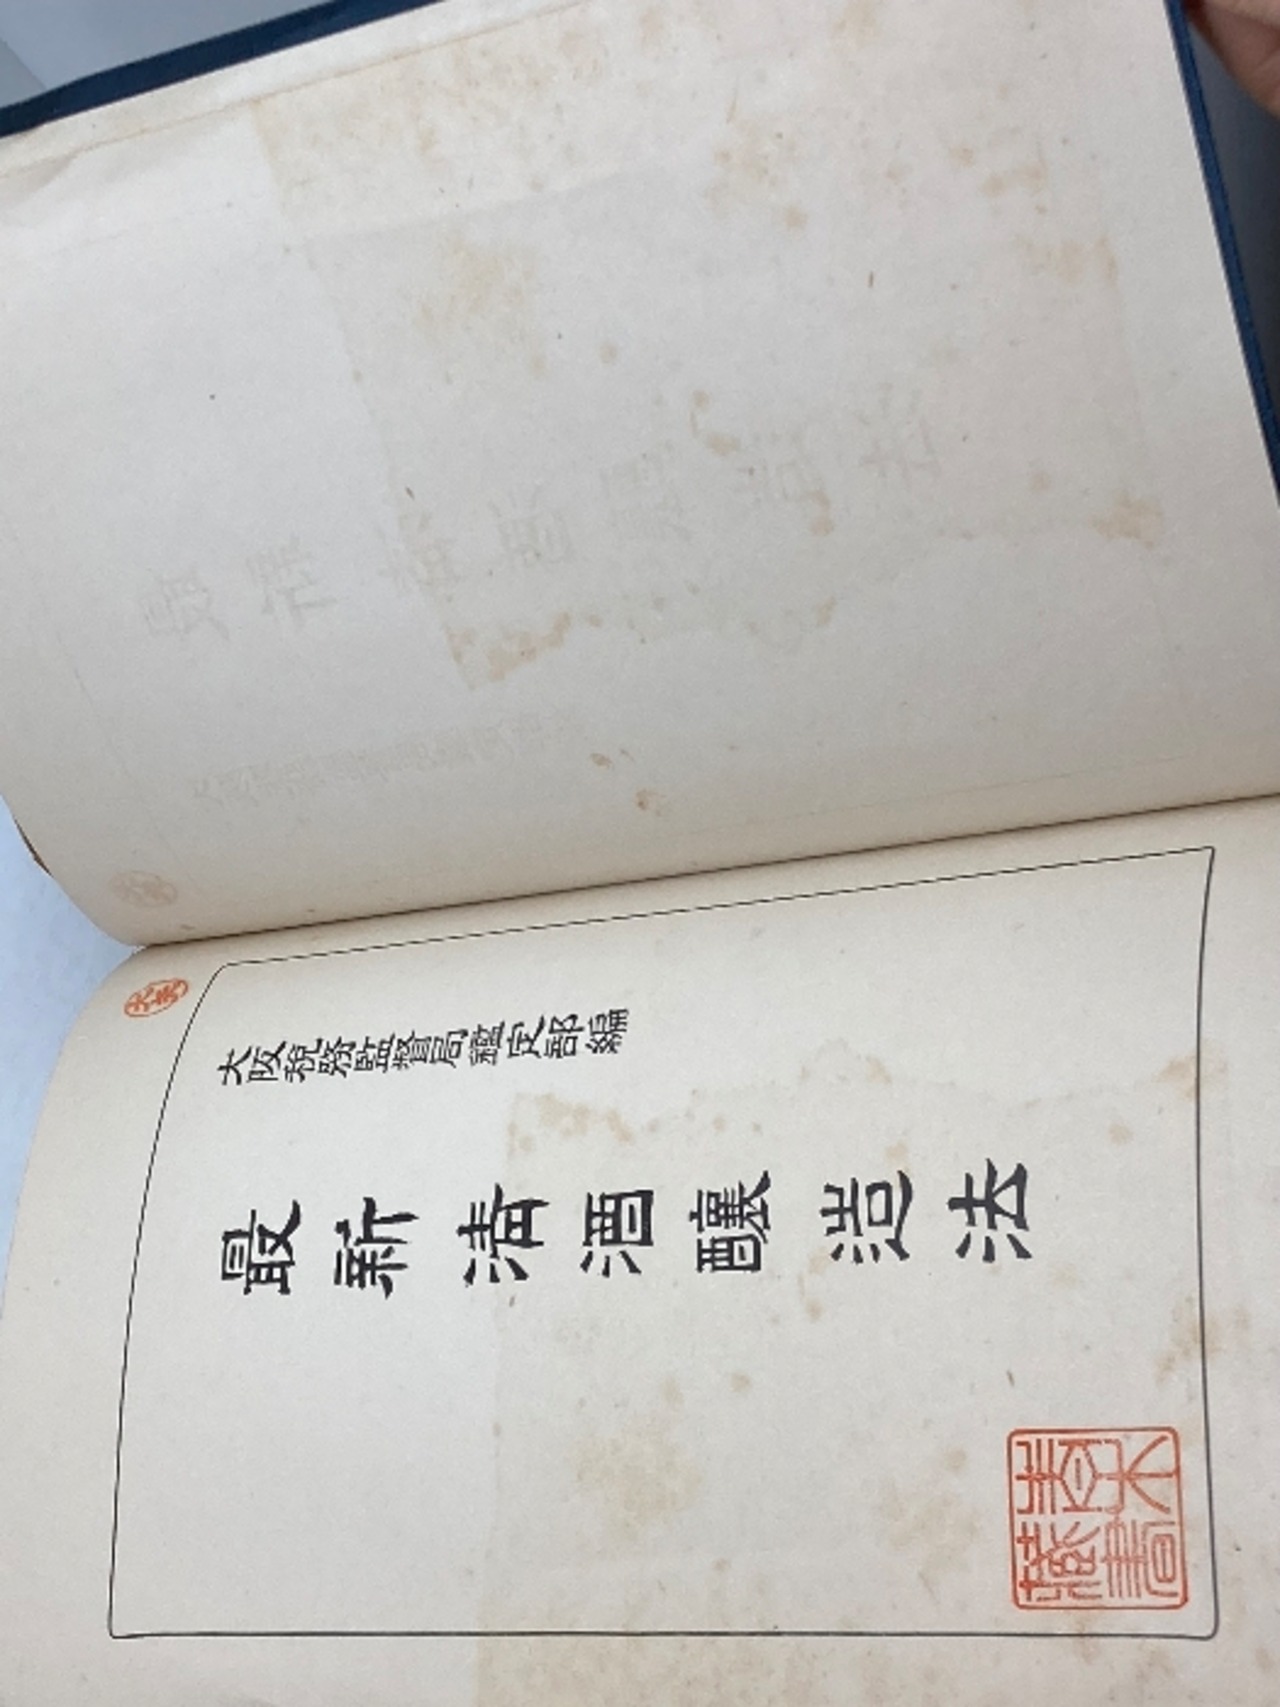 大阪税務監督局鑑定部編
最新清酒釀造法